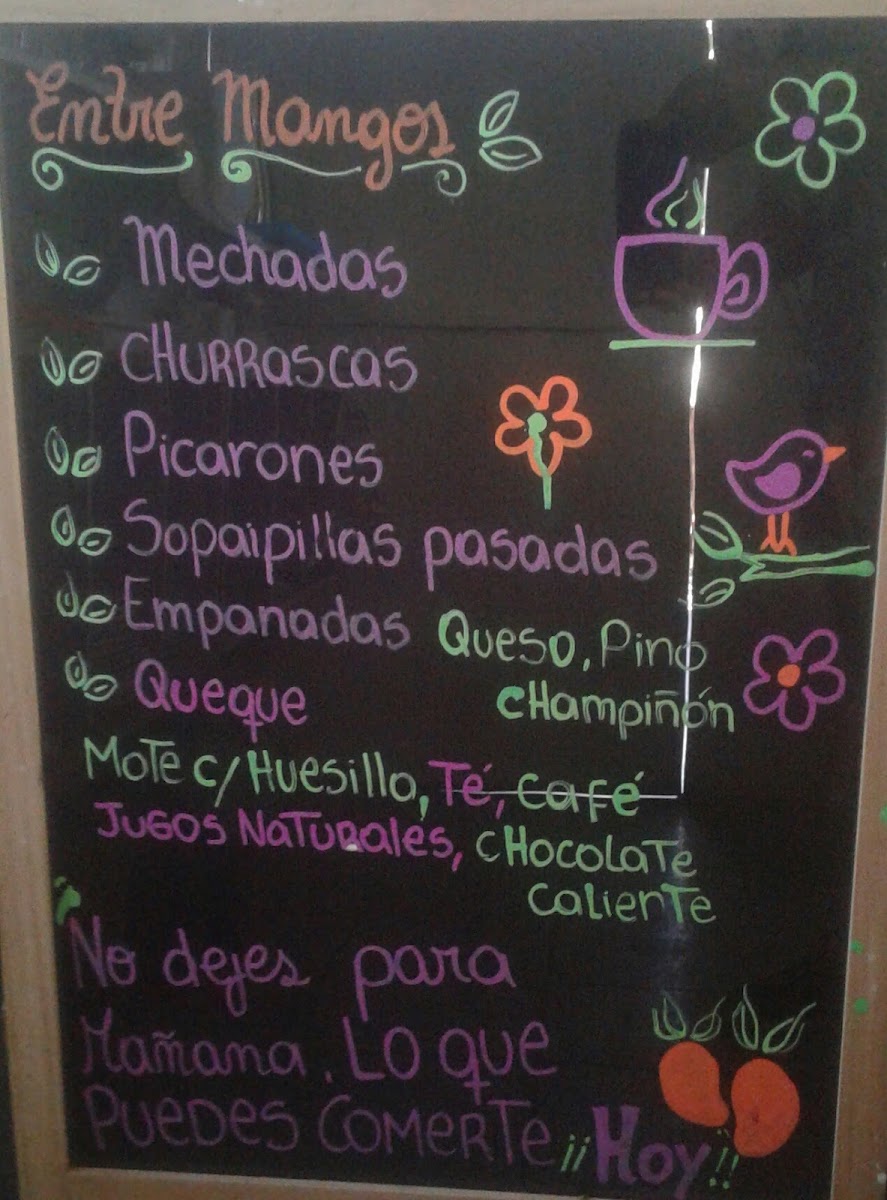 Entre Mangos
Mechadas
CHURRascas
Picarones
Sopaipillas pasadas
Empanadas Queso, Pino
CHampiñón
Queque
MoTe c/Huesillo, Té, café
JUGOS NaTURales, CHocoLaTe
CaLienTe
No dejes para
Mañana. Lo que
PUEDES COMERTe ¡¡Hoy!!